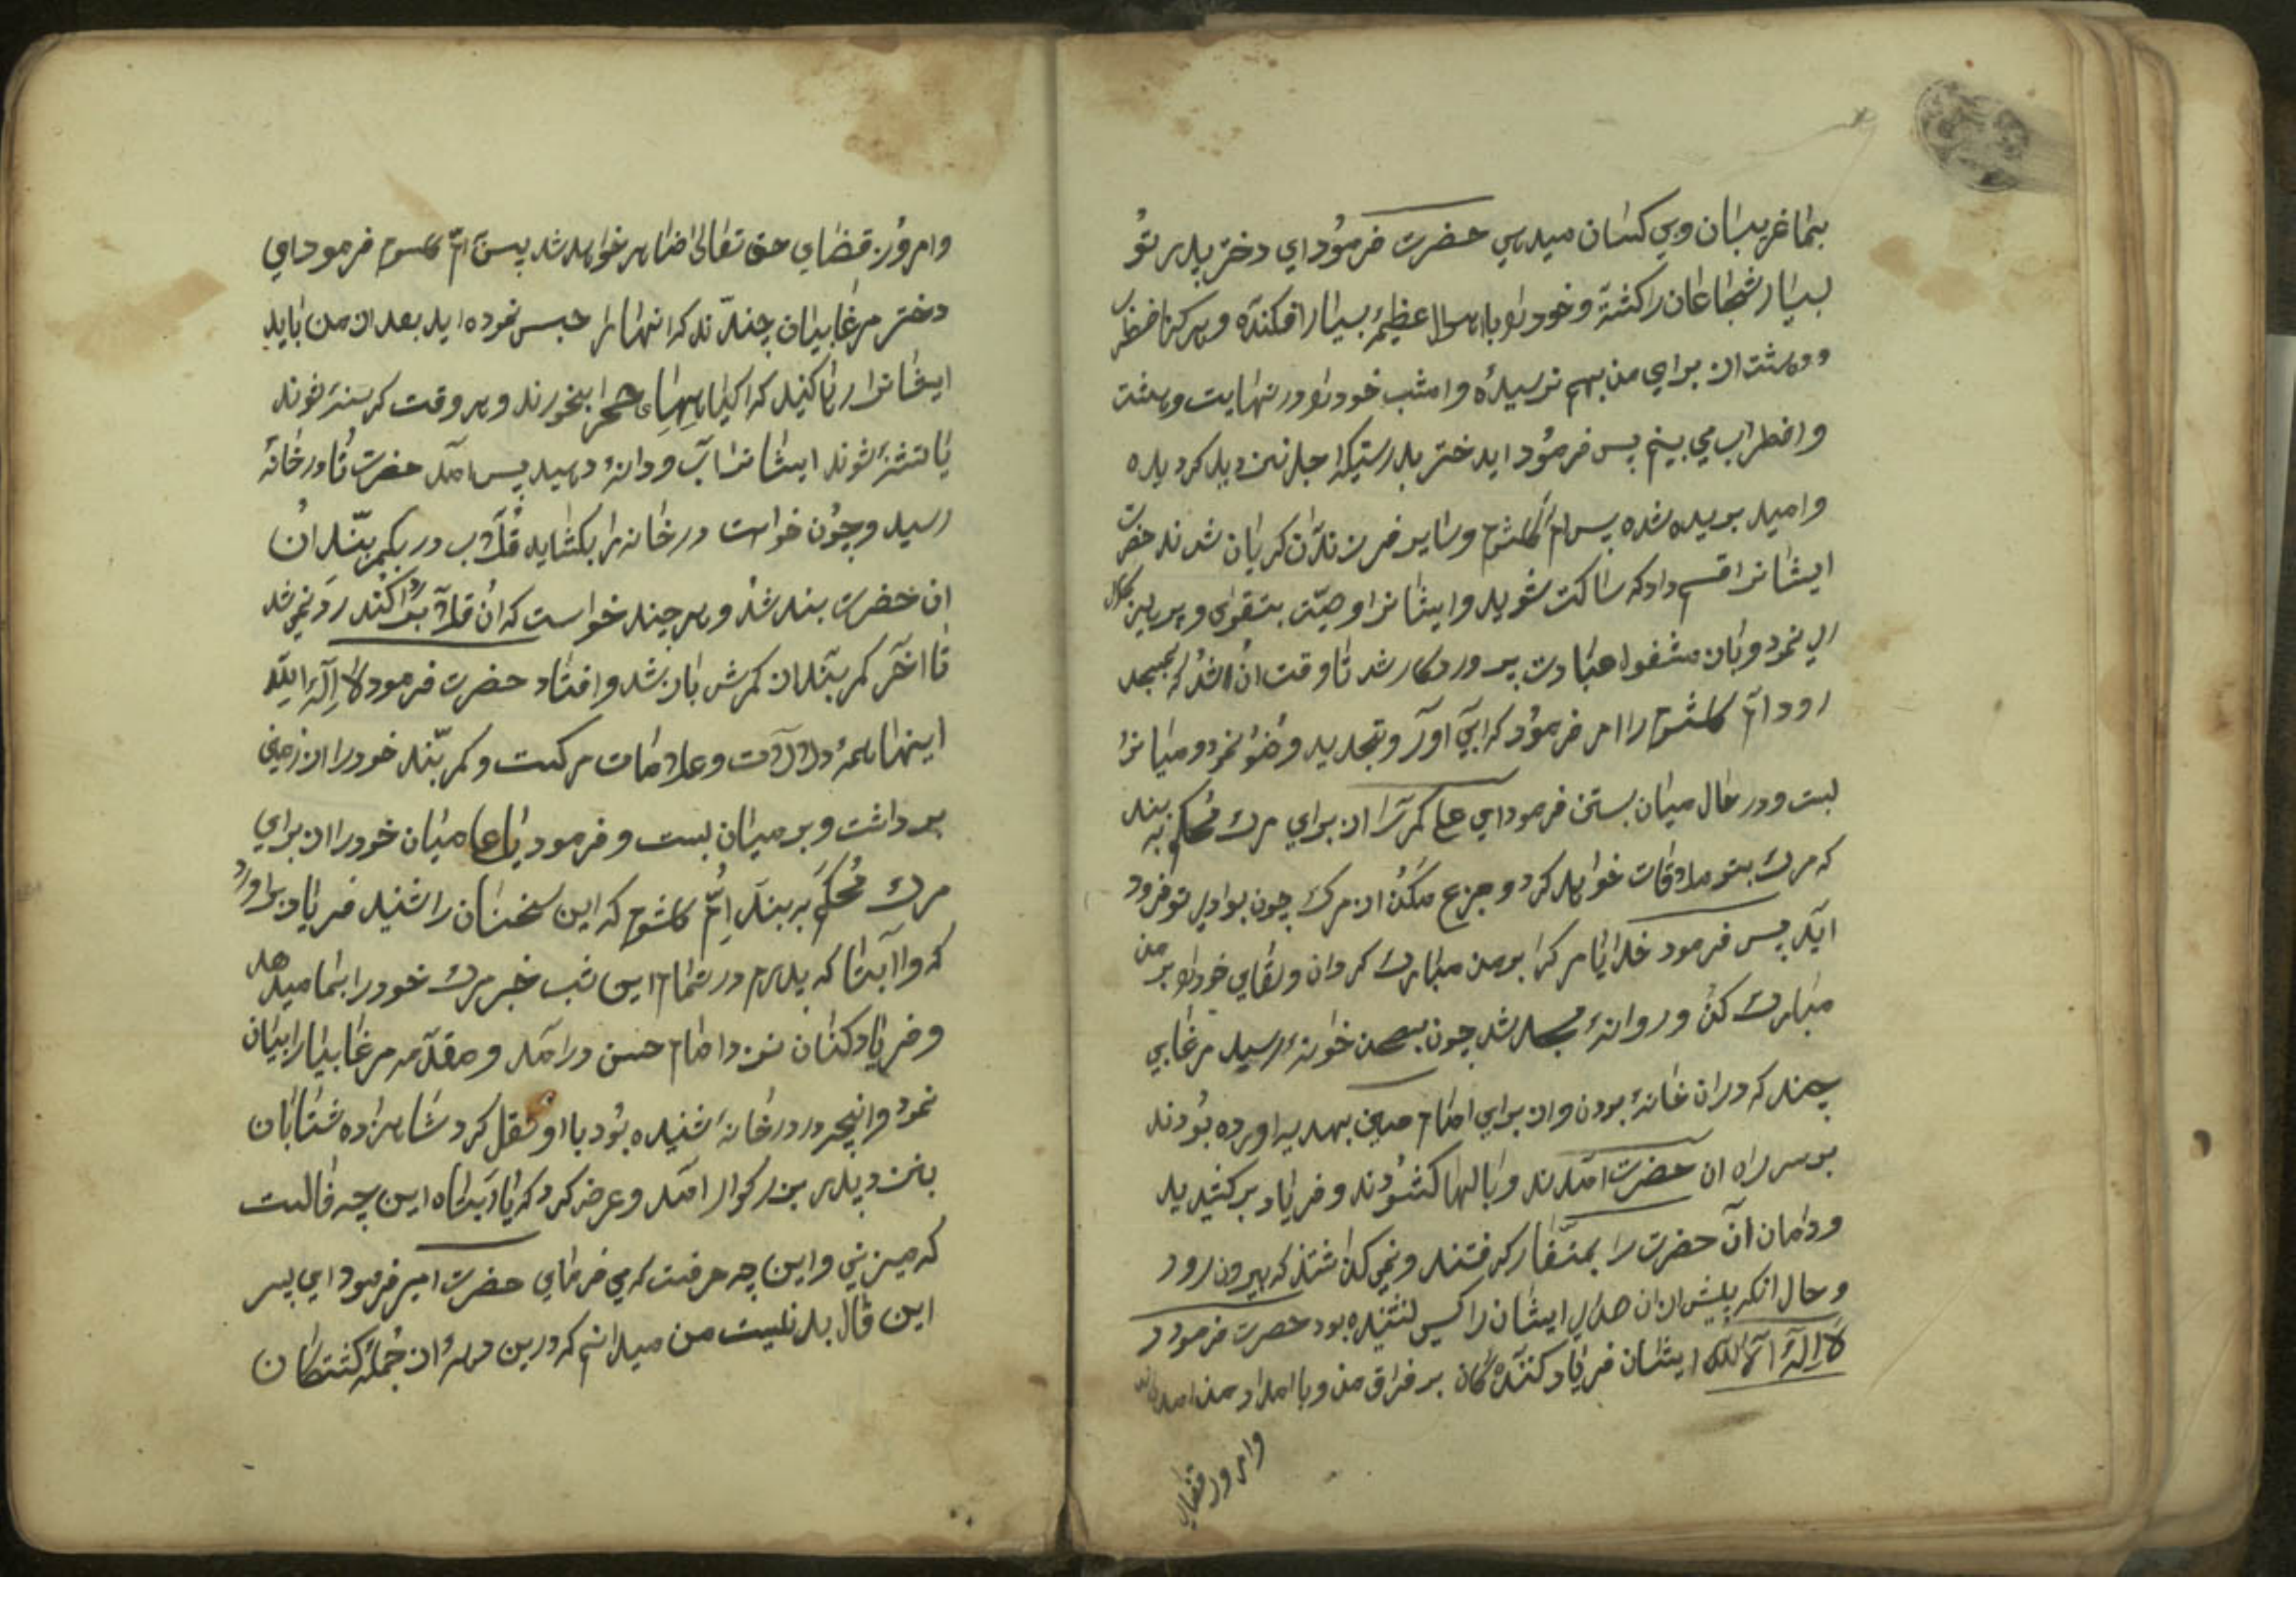 بما غریبان و بی کسان میدهی حضرت فرمود ای دختر پدر تو
بسیار شجاعان را کشته و خود را باهوال عظیمهٔ بسیار افکنده و هرگز اضطراب
و دهشت از برای من بهم نرسیده و امشب خود را در نهایت دهشت
و اضطراب می بینم پس فرمود ایدختر بدرستیکه اجل نزدیک گردیده
و امید بریده شده پس ام کلثوم و سایر فرزندان گریان شدند حضرت
ایشانرا قسم داد که ساکت شوید و ایشانرا وصیت بتقوی و پرهیزکاری
نمود و بان مشغول عبادت پروردگار شد تا وقت ان شد که بمسجد
رود ام کلثوم را امر فرمود که ابی آور و تجدید وضو نمود و میانرا
بست و در حال میان بستن فرمود ای علی کمر را از برای مرک محکم به بند
که مرک بتو ملاقات خواهد کرد و جزع مکن از مرک چون بوادی تو فرود
آید پس فرمود خدایا مرک را بر من مبارک گردان و لقای خود را بر من
مبارک کن و روانهٔ مسجد شد چون بصحن خانه رسید مرغابی
چند که در ان خانه بودن و از برای امام حسین بهدیه اورده بودند
بر سر راه ان حضرت امدند و بالها کشودند و فریاد بر کشیدید
و دامان آن حضرت را بمنقار گرفتند و نمی گذاشتند که بیرون رود
و حال انکه پیش از ان صدای ایشان را کسی نشنیده بود حضرت فرمود
لا اله الا الله ایشان فریاد کننده گان بر فراق من و بامداد من امده اند
وامروز قضای
وامروز قضای حق تعالی ظاهر خواهد شد پس ام کلثوم فرمود ای
دختر مرغابیان چندند که انهارا حبس نموده اید بعد از من باید
ایشانرا رها کنید که از گیاههای صحرا بخورند و هر وقت گرسنه شوند
یا تشنه شوند ایشانرا آب و دانه دهید پس آمد حضرت تا در خانه
رسید و چون خواست در خانه را بکشاید قلاب در بکمر بند ان
ان حضرت بند شد و هر چند خواست که ان قلاب را کند رد نمی شد
تا آخر کمر بند از کمرش باز شد و افتاد حضرت فرمود لا اله الا الله
اینها همهٔ دلالات و علامات مرکست و کمر بند خود را از زمین
بر داشت و بر میان بست و فرمود یا علی میان خود را از برای
مرک محکم به بند ام کلثوم که این سخنان را شنید فریاد براورد
که وا ابتا که پدرم در تمام این شب خبر مرک خود را بما میدهد
و فریاد کنان نزد امام حسن در آمد و مقدمه مرغابیانرا بیان
نمود و انچه در در خانه شنیده بود با او نقل کرد شاهزاده شتابان
بنزد پدر بزرکوار امد و عرض کرد که یا ابتاه این چه فالست
که میزنی و این چه حرفست که می فرمای حضرت امیر فرمود ای پسر
این فال بد نیست من میدانم که درین مرهٔ از جمله کشتکان